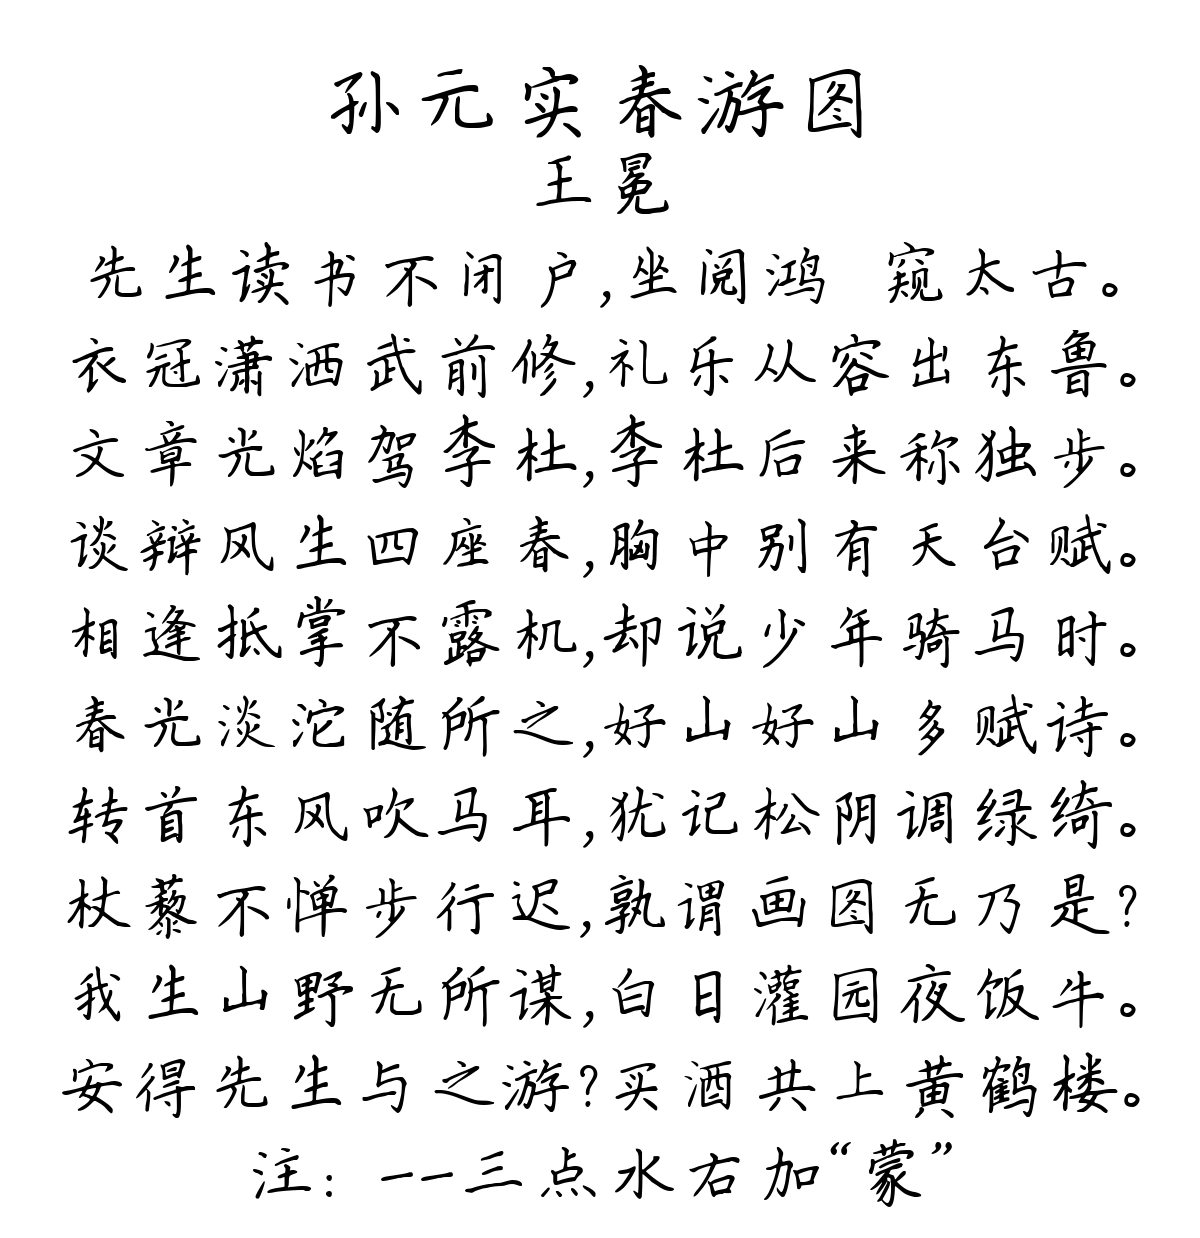 孙元实春游图
王冕
先生读书不闭户,坐阅鸿 窥太古。
衣冠潇洒武前修,礼乐从容出东鲁。
文章光焰驾李杜,李杜后来称独步。
谈辩风生四座春,胸中别有天台赋。
相逢抵掌不露机,却说少年骑马时。
春光淡沱随所之,好山好山多赋诗。
转首东风吹马耳,犹记松阴调绿绮。
杖藜不惮步行迟,孰谓画图无乃是?
我生山野无所谋,白日灌园夜饭牛。
安得先生与之游?买酒共上黄鹤楼。
注：--三点水右加“蒙”